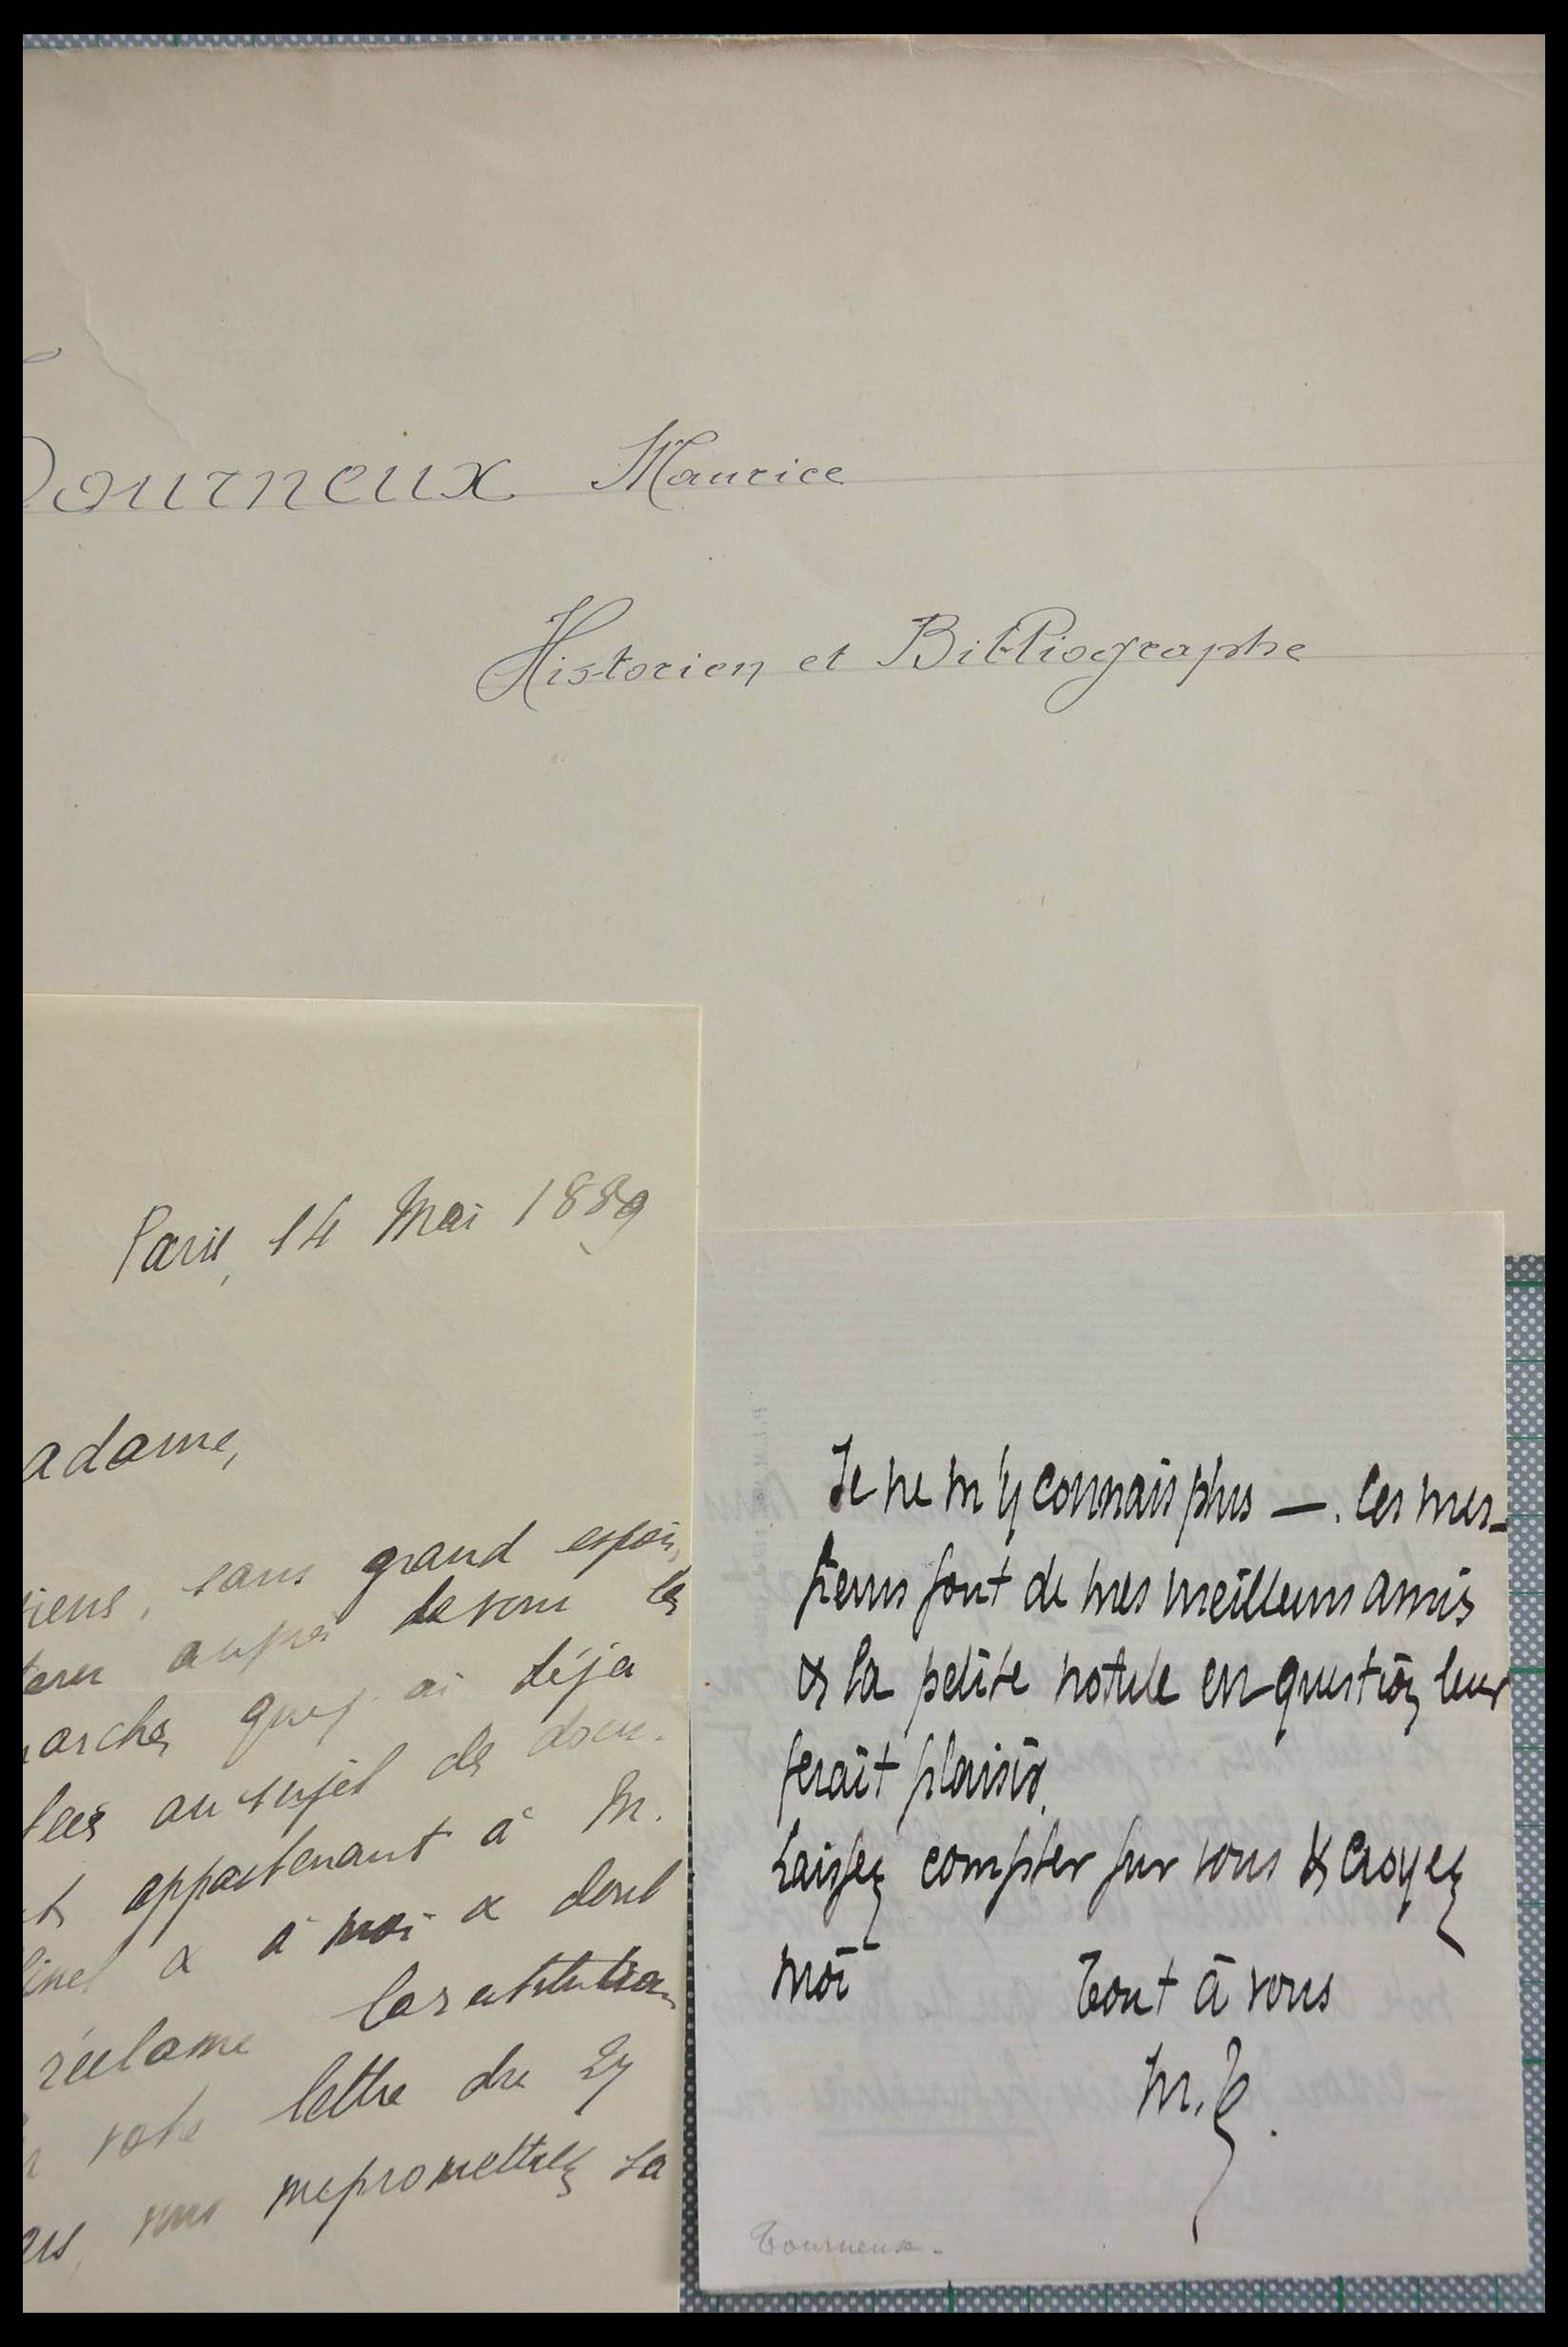 Tourneux Maurice
Historien et Bibliographe
Paris, 14 Mai 1889
adame,
iens, sans grand espoir,
auprès de vous les
arches que j'ai déjà
tées au sujet de docu-
ts appartenant à M.
inel & à moi & dont
réclame la restitution
votre lettre du 27
ars, vous me promettiez la
Je ne m'y connais plus —. Ces mes-
sieurs sont de mes meilleurs amis
& la petite notule en question leur
ferait plaisir.
Laissez compter sur vous & croyez
moi Tout à vous
M. T.
Tourneux.